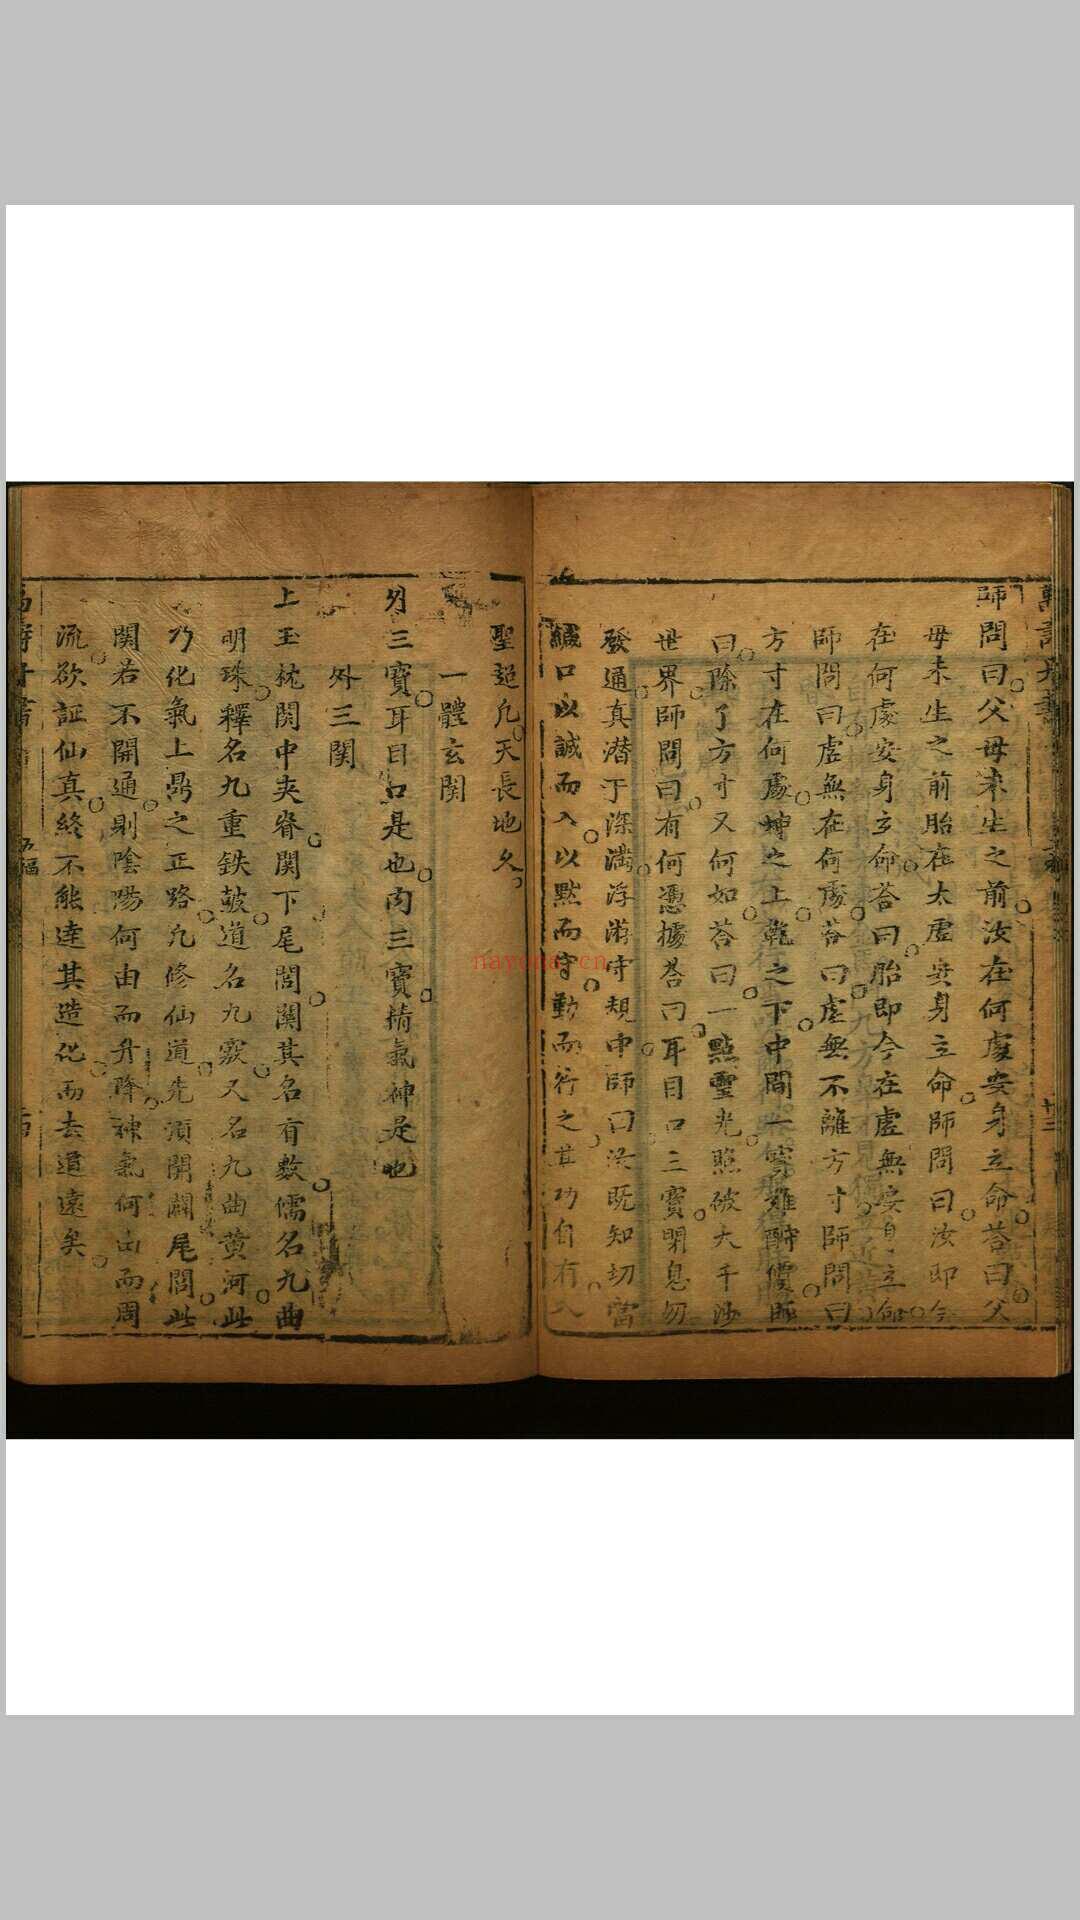 師問曰父母未生之前汝在何處安身立命荅曰父
母未生之前胎在太虛安身立命師問曰汝即今
在何處安身立命荅曰胎即今在虛無安身立命
師問曰虛無在何處荅曰虛無不離方寸師問曰
方寸在何處坤之上乾之下中間一竅難酧價師
曰除了方寸又何如荅曰一點靈光照破大千沙
世界師問曰有何憑據荅曰耳目口三寶閉息勿
發通真潜于深淵浮游守規中師曰汝既知切當
緘口以誠而入以黙而守動而行之其功自有入
聖超凡天長地久
一體玄関
外三寶耳目口是也内三寶精氣神是也
外三関
上玉枕関中夹脊関下尾閭関其名有數儒名九曲
明珠釋名九重鉄皷道名九竅又名九曲黄河此
乃化氣上鼎之正路凢修仙道先湏開闢尾閭此
関若不開通則陰陽何由而升降神氣何由而周
流欲証仙真終不能逹其造化而去道遠矣
nayona.cn